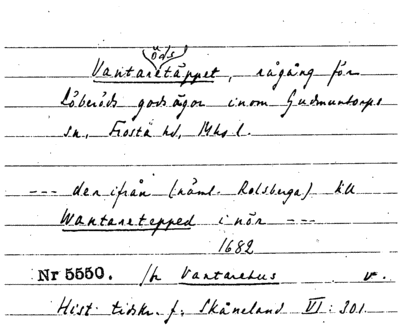 öds
Vantaretäppet, rågång för
Löberöds godsägor inom Gudmuntorps
sn, Frosta hd, Mhs l.
--- den ifrån (näml. Rolsberga) till
Wantaretepped i nör ---
1682
Nr 5550. /h Vantarehus v.
Hist. tidskr. f. Skåneland VI: 301